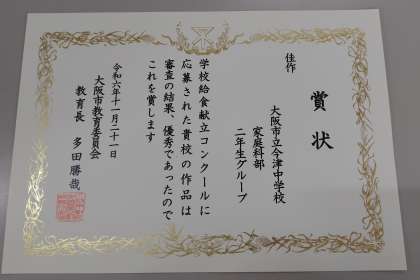 賞状
佳作
大阪市立今津中学校
家庭科部
二年生グループ
学校給食献立コンクールに
応募された貴校の作品は
審査の結果、優秀であったので
これを賞します
令和六年十一月二十一日
大阪市教育委員会
教育長 多田勝哉